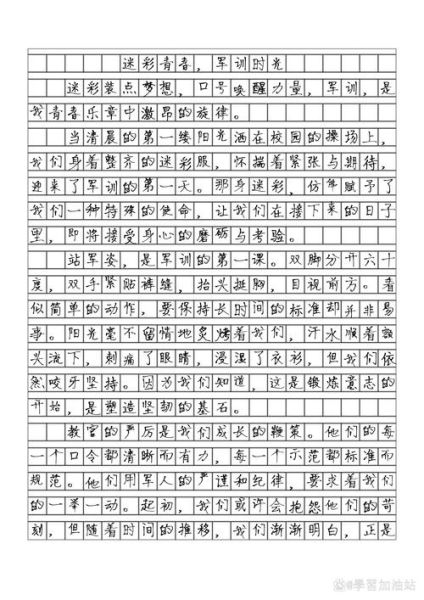 迷彩青春，军训时光
迷彩装点梦想，口号唤醒力量，军训，是
我青春乐章中激昂的旋律。
当清晨的第一缕阳光洒在校园的操场上，
我们身着整齐的迷彩服，怀揣着紧张与期待，
迎来了军训的第一天。那身迷彩，仿佛赋予了
我们一种特殊的使命，让我们在接下来的日子
里，即将接受身心的磨砺与考验。
站军姿，是军训的第一课。双脚分开六十
度，双手紧贴裤缝，抬头挺胸，目视前方。看
似简单的动作，要保持长时间的标准却并非易
事。阳光毫不留情地炙烤着我们，汗水顺着额
头流下，刺痛了眼睛，浸湿了衣衫，但我们依
然咬牙坚持。因为我们知道，这是锻炼意志的
开始，是塑造坚韧的基石。
教官的严厉是我们成长的鞭策。他们的每
一个口令都清晰而有力，每一个示范都标准而
规范。他们用军人的严谨和纪律，要求着我们
的一举一动。起初，我们或许会抱怨他们的苛
刻，但随着时间的推移，我们渐渐明白，正是
@學習加油站